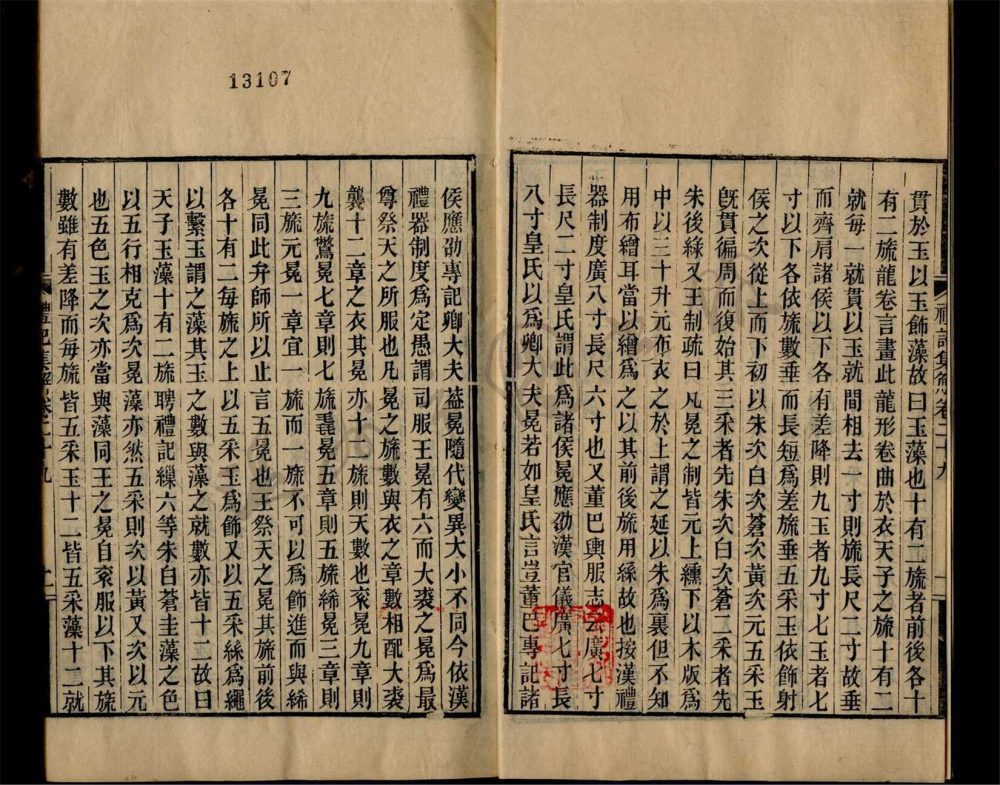 13107
貫於玉以玉飾藻故曰玉藻也十有二旒者前後各十
有二旒龍卷言畫此龍形卷曲於衣天子之旒十有二
就每一就貫以玉就間相去一寸則旒長尺二寸故垂
而齊肩諸侯以下各有差降則九玉者九寸七玉者七
寸以下各依旒數垂而長短爲差旒垂五采玉依飾射
侯之次從上而下初以朱次白次蒼次黃次元五采玉
旣貫徧周而復始其三采者先朱次白次蒼二采者先
朱後綠又王制疏曰凡冕之制皆元上纁下以木版爲
中以三十升元布衣之於上謂之延以朱爲裏但不知
用布繒耳當以繒爲之以其前後旒用絲故也按漢禮
器制度廣八寸長尺六寸也又董巴輿服志云廣七寸
長尺二寸皇氏謂此爲諸侯冕應劭漢官儀廣七寸長
八寸皇氏以爲卿大夫冕若如皇氏言豈董巴專記諸
禮記集解卷二十九
侯應劭專記卿大夫葢冕隨代變異大小不同今依漢
禮器制度爲定愚謂司服王冕有六而大裘之冕爲最
尊祭天之所服也凡冕之旒數與衣之章數相配大裘
襲十二章之衣其冕亦十二旒則天數也衮冕九章則
九旒鷩冕七章則七旒毳冕五章則五旒絺冕三章則
三旒元冕一章宜一旒而一旒不可以爲飾進而與絺
冕同此弁師所以止言五冕也王祭天之冕其旒前後
各十有二每旒之上以五采玉爲飾又以五采絲爲繩
以繫玉謂之藻其玉之數與藻之就數亦皆十二故曰
天子玉藻十有二旒聘禮記繅六等朱白蒼圭藻之色
以五行相克爲次冕藻亦然五采則次以黃又次以元
也五色玉之次亦當與藻同王之冕自衮服以下其旒
數雖有差降而每旒皆五采玉十二皆五采藻十二就
禮記集解卷二十九